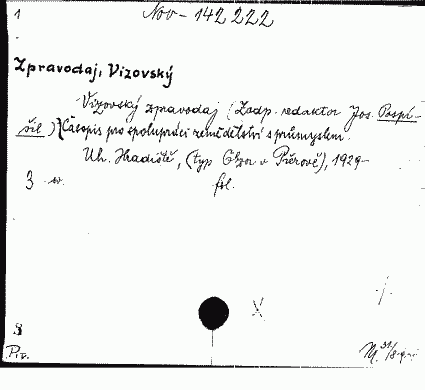 1
Nov - 142 222
Zpravodaj, Vizovský
Vizovský zpravodaj (Zodp. redaktor Jos. Pospí-
šil) Časopis pro spolupráci zemědělství s průmyslem.
Uh. Hradiště, (typ Obzor v Přerově), 1929-
3 sv. fol.
X
8